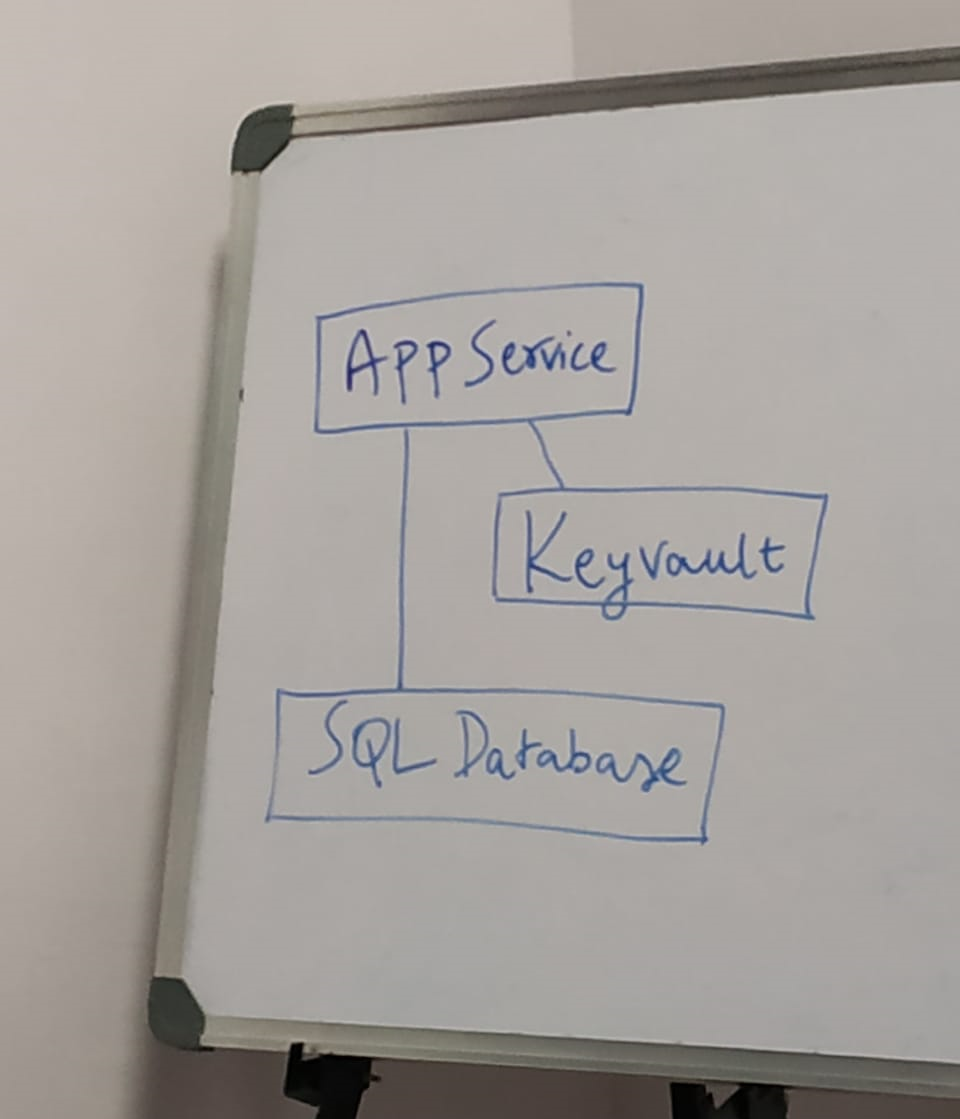 App Service
Keyvault
SQL Database